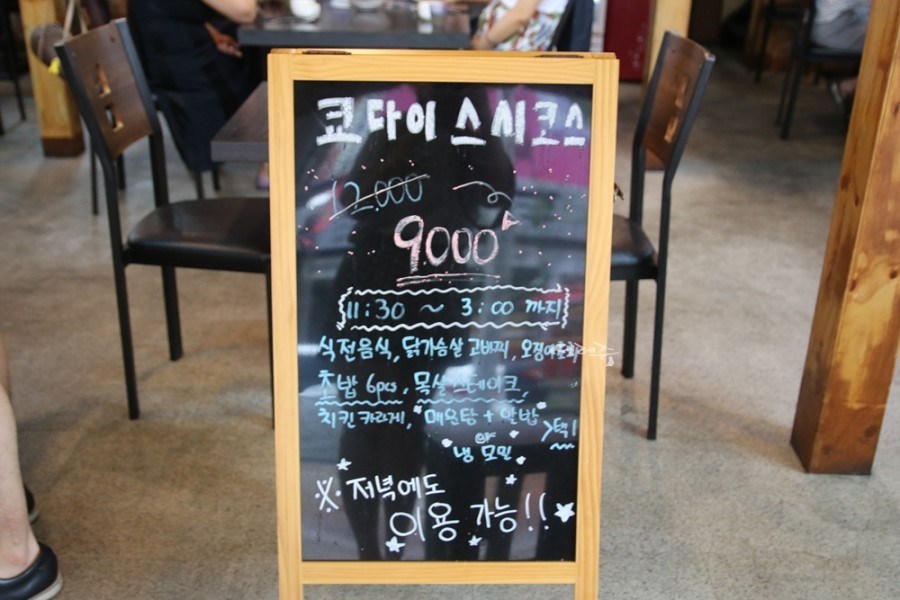 쿄다이 스시코스
12.000
9000
11:30 ~ 3:00 까지
식전음식, 닭가슴살 고바찌,
초밥 6pcs, 목살스테이크,
치킨 카라게, 매운탕 + 알밥 >택1
or
냉 모밀
※ 저녁에도
이용 가능!!